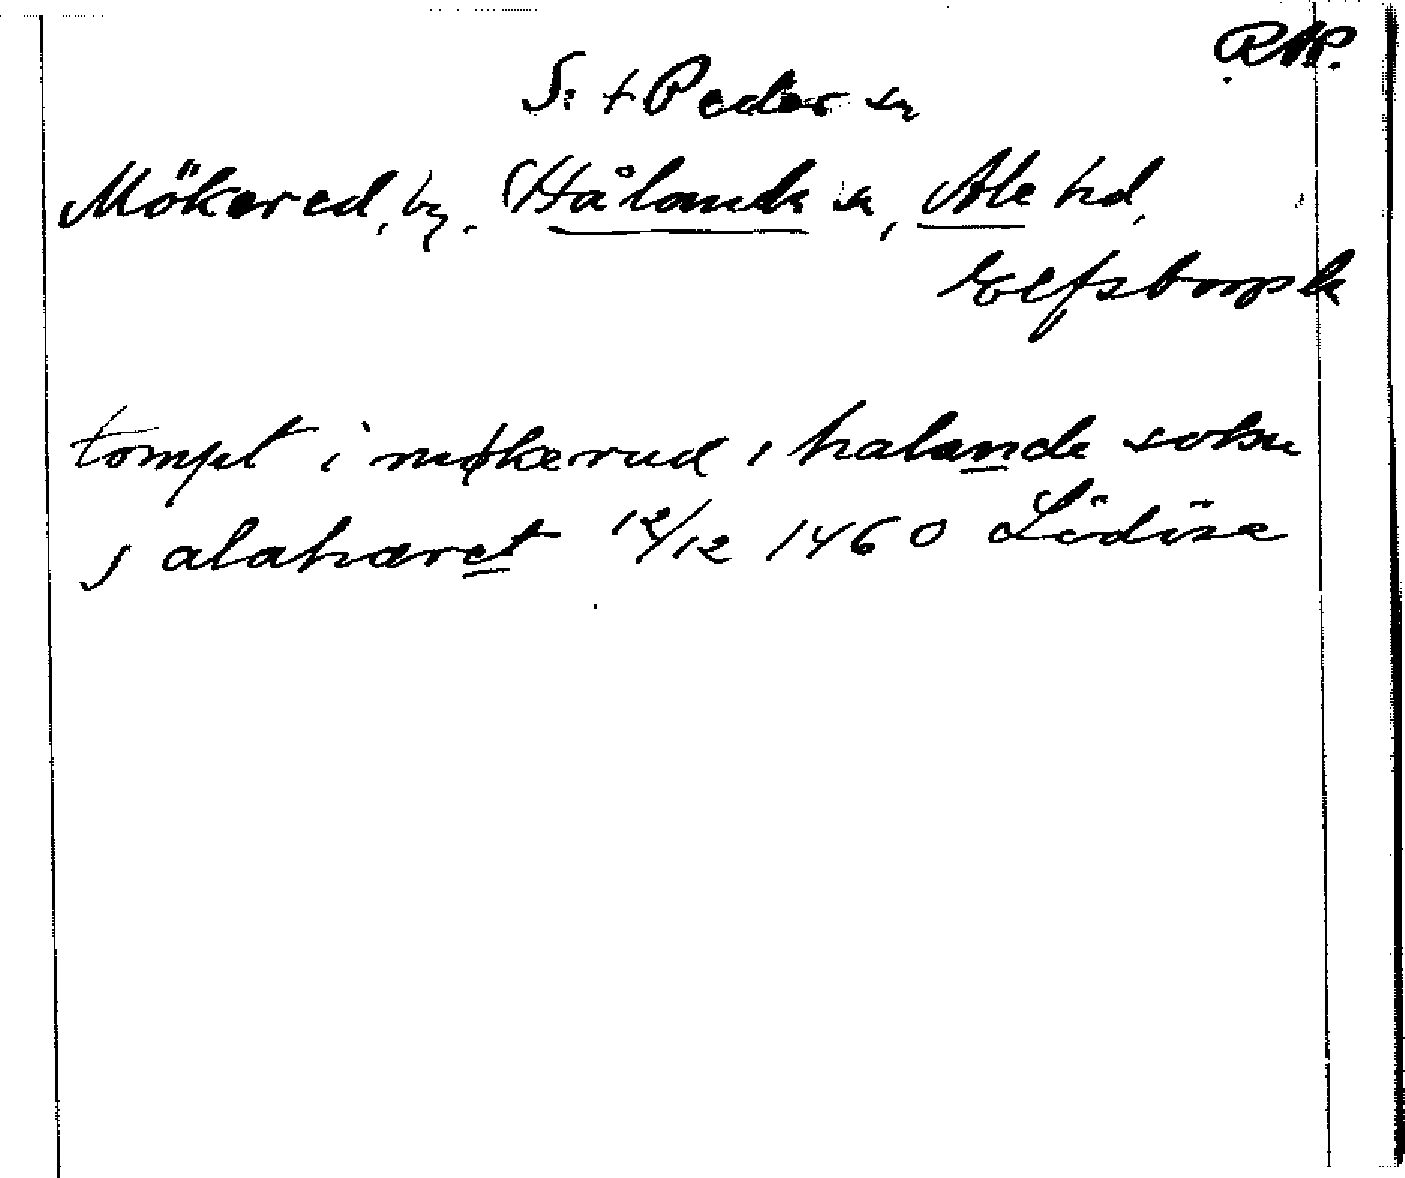 RAP.
S:t Peder sn
Mökered, by. (Hålanda sn, Ale hd,
Elfsborgs l.
tompt i møkærud i halanda sokn
j alahæret 12/12 1460 Lödöse